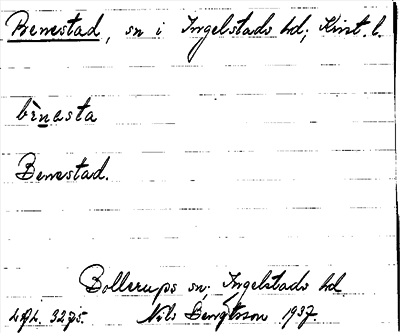 Benestad, sn i Ingelstads hd; Krist. l.
bènasta
Benestad.
Bollerups sn, Ingelstads hd
Nils Bengtsson 1937.